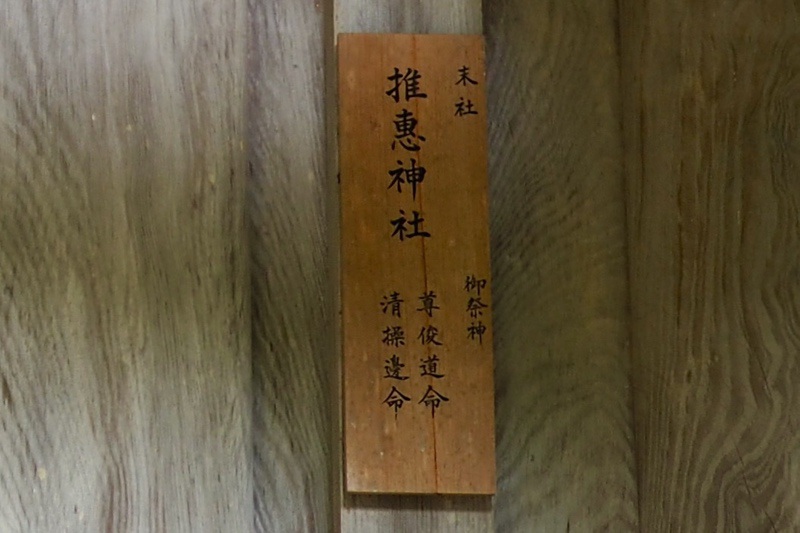 末社
推恵神社
御祭神
尊俊道命
清操邊命